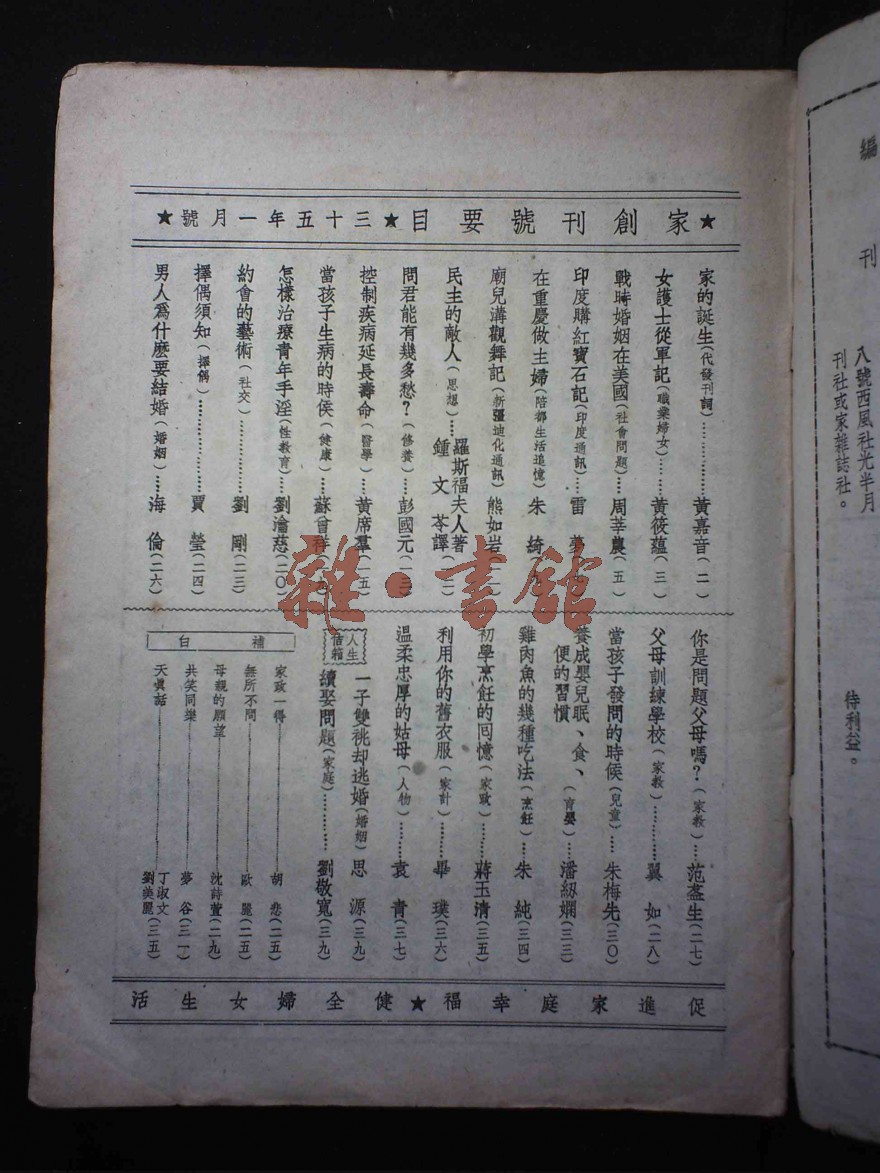 ★家創刊號要目★三十五年一月號★
家的誕生(代發刊詞)………………黃嘉音(二)
女護士從軍記(職業婦女)……黃筱蘊(三)
戰時婚姻在美國(社會問題)…周莘農(五)
印度購紅寶石記(印度通訊)…雷
在重慶做主婦(陪都生活追憶)朱 綺
廟兒溝觀舞記(新疆迪化通訊)熊如岩
民主的敵人(思想)……羅斯福夫人著 鍾文苓譯(一二)
問君能有幾多愁?(修養)…彭國元(一三)
控制疾病延長壽命(醫學)…黃席羣(一五)
當孩子生病的時候(健康)…蘇會祥
怎樣治療青年手淫(性教育)…劉瀹慈(二〇)
約會的藝術(社交)………………劉 剛(二三)
擇偶須知(擇偶)…………………賈 瑩(二四)
男人爲什麽要結婚(婚姻)…海 倫(二六)
你是問題父母嗎?(家敎)…范 生(二七)
父母訓練學校(家敎)………翼 如(二八)
當孩子發問的時候(兒童)…朱梅先(三〇)
養成嬰兒眠、食、便的習慣(育嬰)…潘紉嫻(三三)
雞肉魚的幾種吃法(烹飪)…朱 純(三四)
初學烹飪的回憶(家政)……蔣玉清(三五)
利用你的舊衣服(家計)……畢 璞(三六)
温柔忠厚的姑母(人物)……袁 青(三七)
人生信箱
一子雙祧却逃婚(婚姻)思 源(三九)
續娶問題(家庭)…………劉敬寬(三九)
補白
家政一得——胡 悲(二五)
無所不問——歐 麗(二五)
母親的願望——沈詩萱(二九)
共笑同樂——夢 谷(三一)
天眞話——丁淑文 劉美麗(三五)
促進家庭幸福★健全婦女生活
雜·書館
編
刊
八號西風社光半月
刊社或家雜誌社。
待利益。